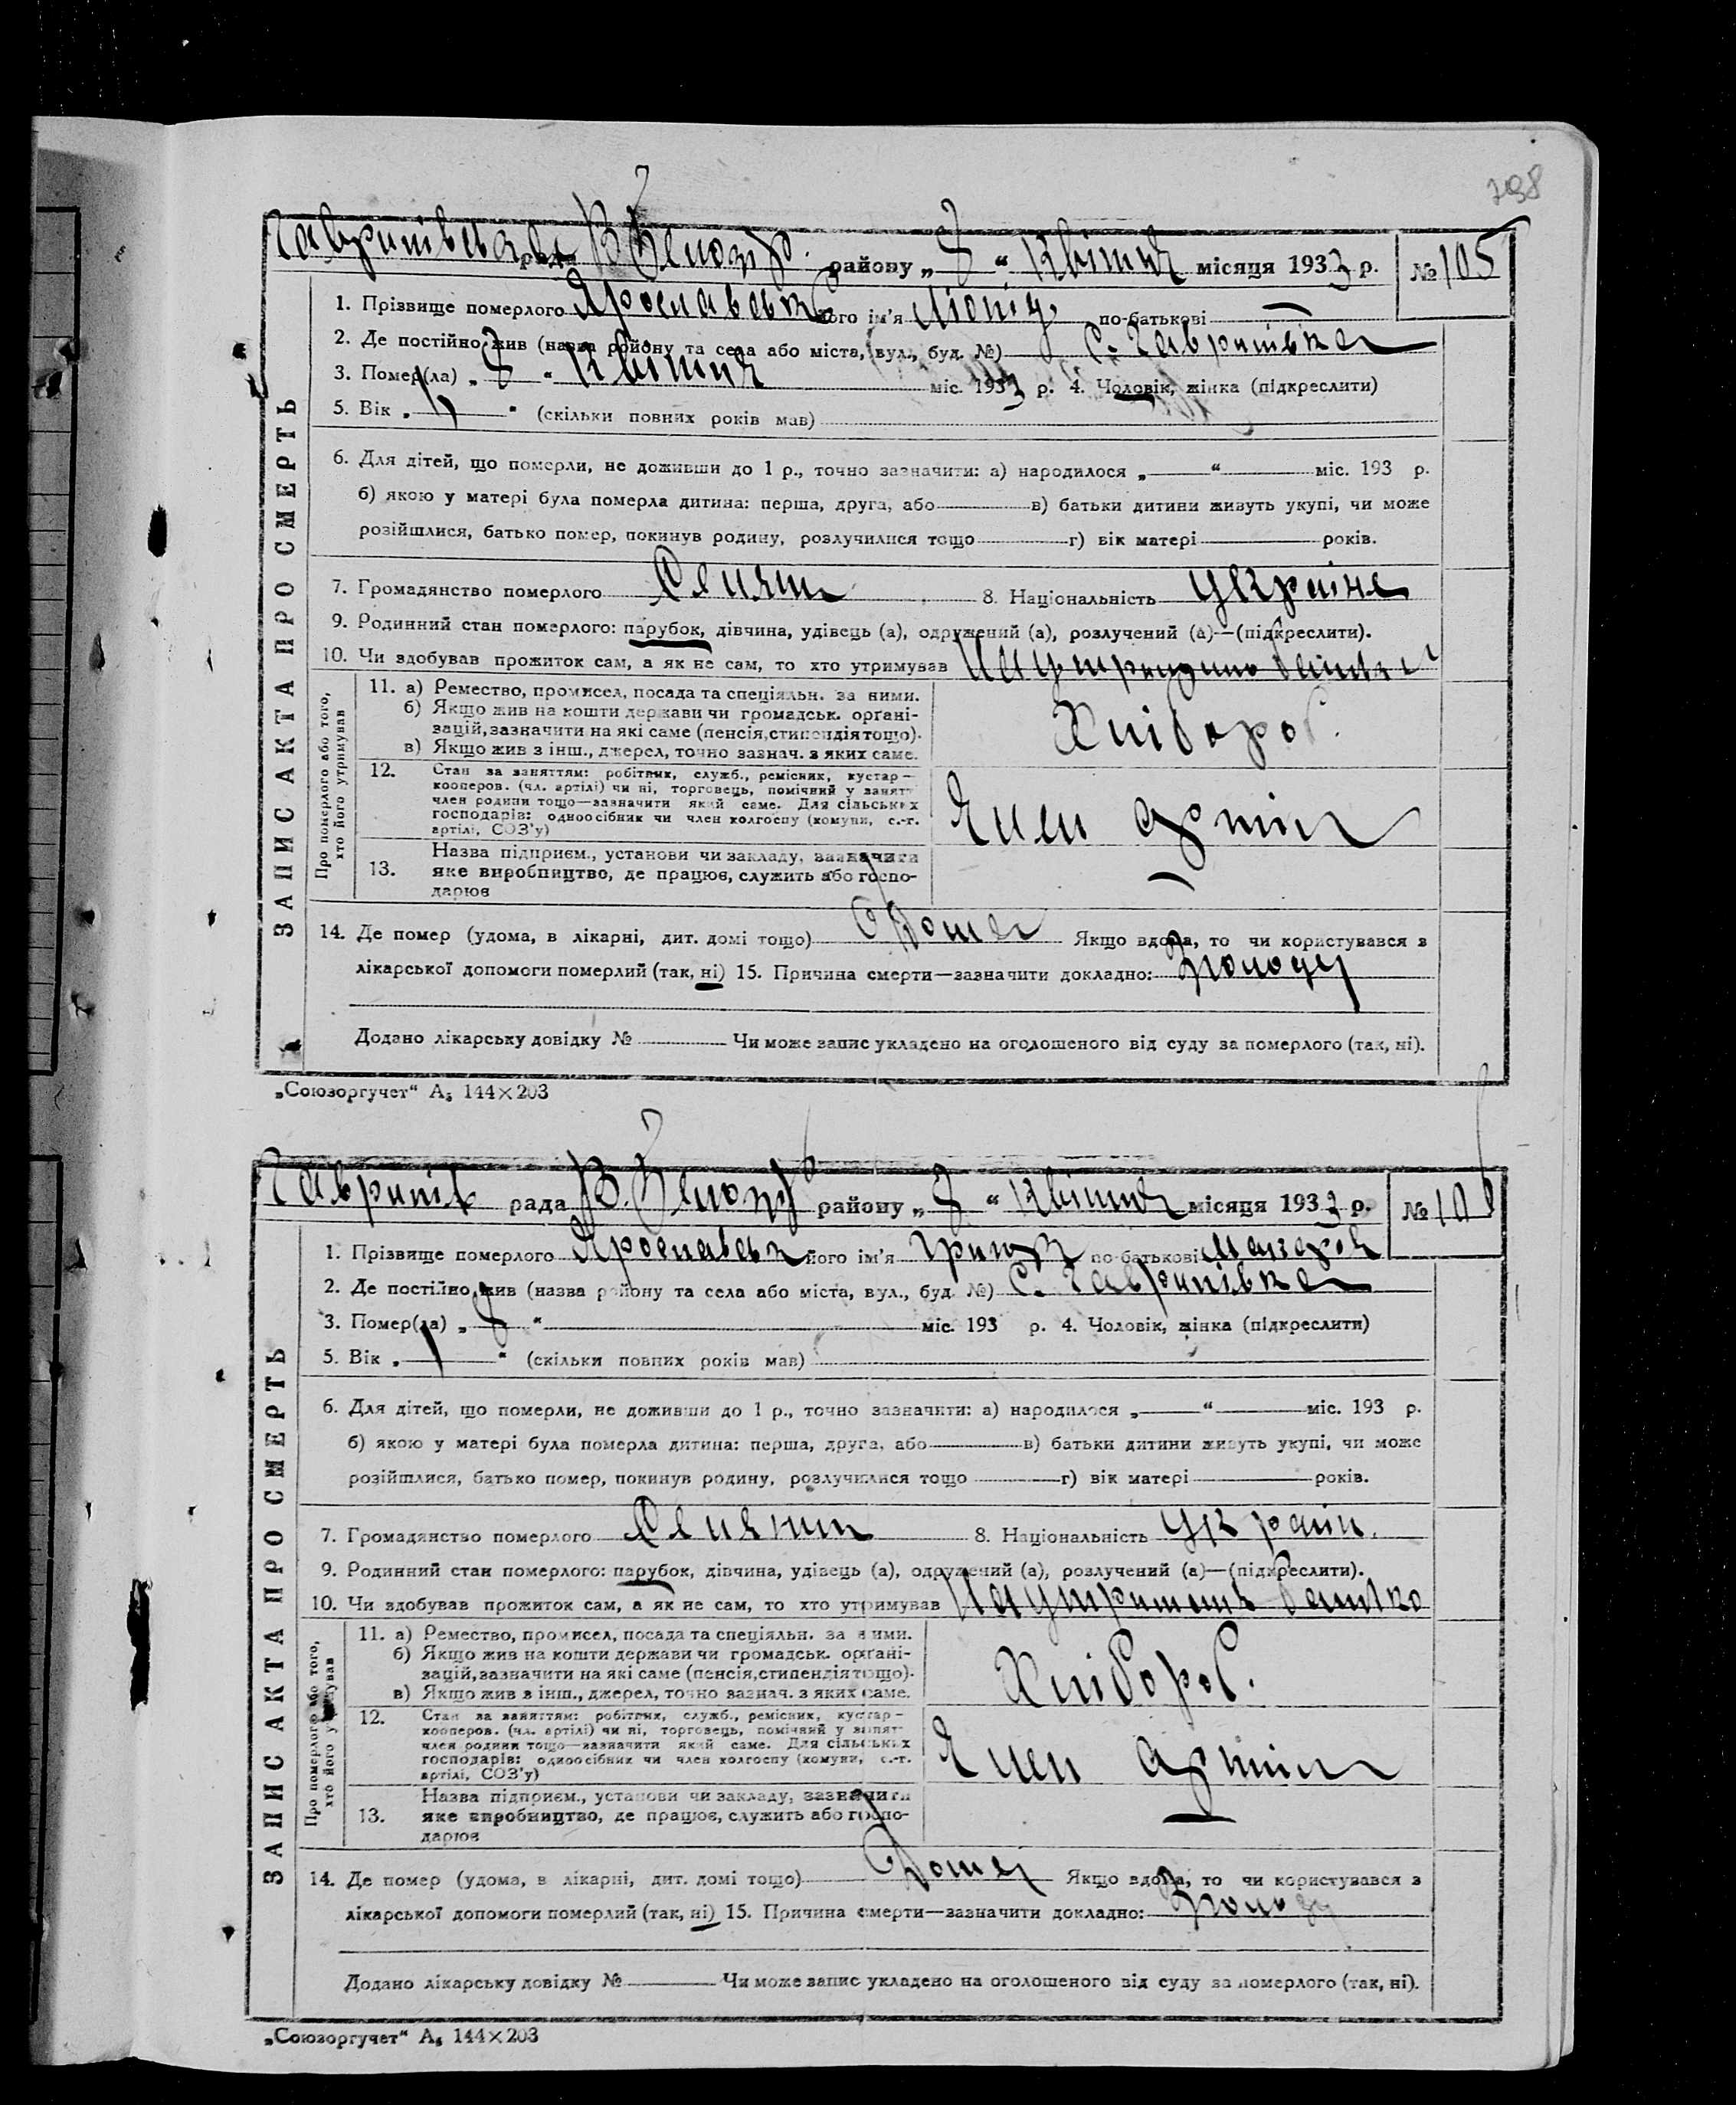 798
Гаврилівська рада В. Білозір. району „8“ Квітня місяця 1933 р. № 105
1. Прізвище померлого Ярославськ його ім'я по-батькові —
2. Де постійно жив (назва району та села або міста, вул., буд. №) С. Гаврилівка
3. Помер(ла) „8“ Квітня міс. 1933 р. 4. Чоловік, жінка (підкреслити)
5. Вік „ “ (скільки повних років мав)
6. Для дітей, що померли, не доживши до 1 р., точно зазначити: а) народилося „ “ міс. 193 р.
б) якою у матері була померла дитина: перша, друга, або в) батьки дитини живуть укупі, чи може
розійшлися, батько помер, покинув родину, розлучилися тощо г) вік матері років.
7. Громадянство померлого Селян 8. Національність Україне
9. Родинний стан померлого: парубок, дівчина, удівець (а), одружений (а), розлучений (а)—(підкреслити).
10. Чи здобував прожиток сам, а як не сам, то хто утримував
11. а) Ремество, промисел, посада та спеціяльн. за ними.
б) Якщо жив на кошти держави чи громадськ. організацій,
зазначити на які саме (пенсія, стипендія тощо).
в) Якщо жив з інш., джерел, точно зазнач. з яких саме.
Хлібороб.
12. Стан за заняттям: робітник, служб., ремісник, кустар—
кооперов. (чл. артілі) чи ні, торговець, помічний у занятт
член родини тощо—зазначити який саме. Для сільських
господарів: одноосібник чи член колгоспу (комуни, с.-г.
артілі, СОЗ'у)
Член артіл
13. Назва підприєм., установи чи закладу, зазначити
яке виробництво, де працює, служить або госпо-
дарює —
Про померлого або того,
хто його утримував
14. Де помер (удома, в лікарні, дит. домі тощо) Дома Якщо вдома, то чи користувався з
лікарської допомоги померлий (так, ні) 15. Причина смерти—зазначити докладно: Зголоду
Додано лікарську довідку № Чи може запис укладено на оголошеного від суду за померлого (так, ні).
ЗАПИС АКТА ПРО СМЕРТЬ
„Союзоргучет“ А₅ 144×203
Гаврилів рада В. Білозір району „8“ Квітня місяця 1933 р. № 10
1. Прізвище померлого Ярославськ його ім'я Григор по-батькові
2. Де постійно жив (назва району та села або міста, вул., буд. №) С. Гаврилівка
3. Помер(ла) „8“ міс. 193 р. 4. Чоловік, жінка (підкреслити)
5. Вік „ “ (скільки повних років мав)
6. Для дітей, що померли, не доживши до 1 р., точно зазначити: а) народилося „ “ міс. 193 р.
б) якою у матері була померла дитина: перша, друга, або в) батьки дитини живуть укупі, чи може
розійшлися, батько помер, покинув родину, розлучилися тощо г) вік матері років.
7. Громадянство померлого Селянин 8. Національність Україн.
9. Родинний стан померлого: парубок, дівчина, удівець (а), одружений (а), розлучений (а)—(підкреслити).
10. Чи здобував прожиток сам, а як не сам, то хто утримував На утриманя батько
11. а) Ремество, промисел, посада та спеціяльн. за ними.
б) Якщо жив на кошти держави чи громадськ. організацій,
зазначити на які саме (пенсія, стипендія тощо).
в) Якщо жив з інш., джерел, точно зазнач. з яких саме.
Хлібороб.
12. Стан за заняттям: робітник, служб., ремісник, кустар—
кооперов. (чл. артілі) чи ні, торговець, помічний у занят
член родини тощо—зазначити який саме. Для сільських
господарів: одноосібник чи член колгоспу (комуни, с.-г.
артілі, СОЗ'у)
Член артіл
13. Назва підприєм., установи чи закладу, зазначити
яке виробництво, де працює, служить або госпо-
дарює —
Про померлого або того,
хто його утримував
14. Де помер (удома, в лікарні, дит. домі тощо) Дома Якщо вдома, то чи користувався з
лікарської допомоги померлий (так, ні) 15. Причина смерти—зазначити докладно: Зголоду
Додано лікарську довідку № Чи може запис укладено на оголошеного від суду за померлого (так, ні).
ЗАПИС АКТА ПРО СМЕРТЬ
„Союзоргучет“ А₅ 144×203